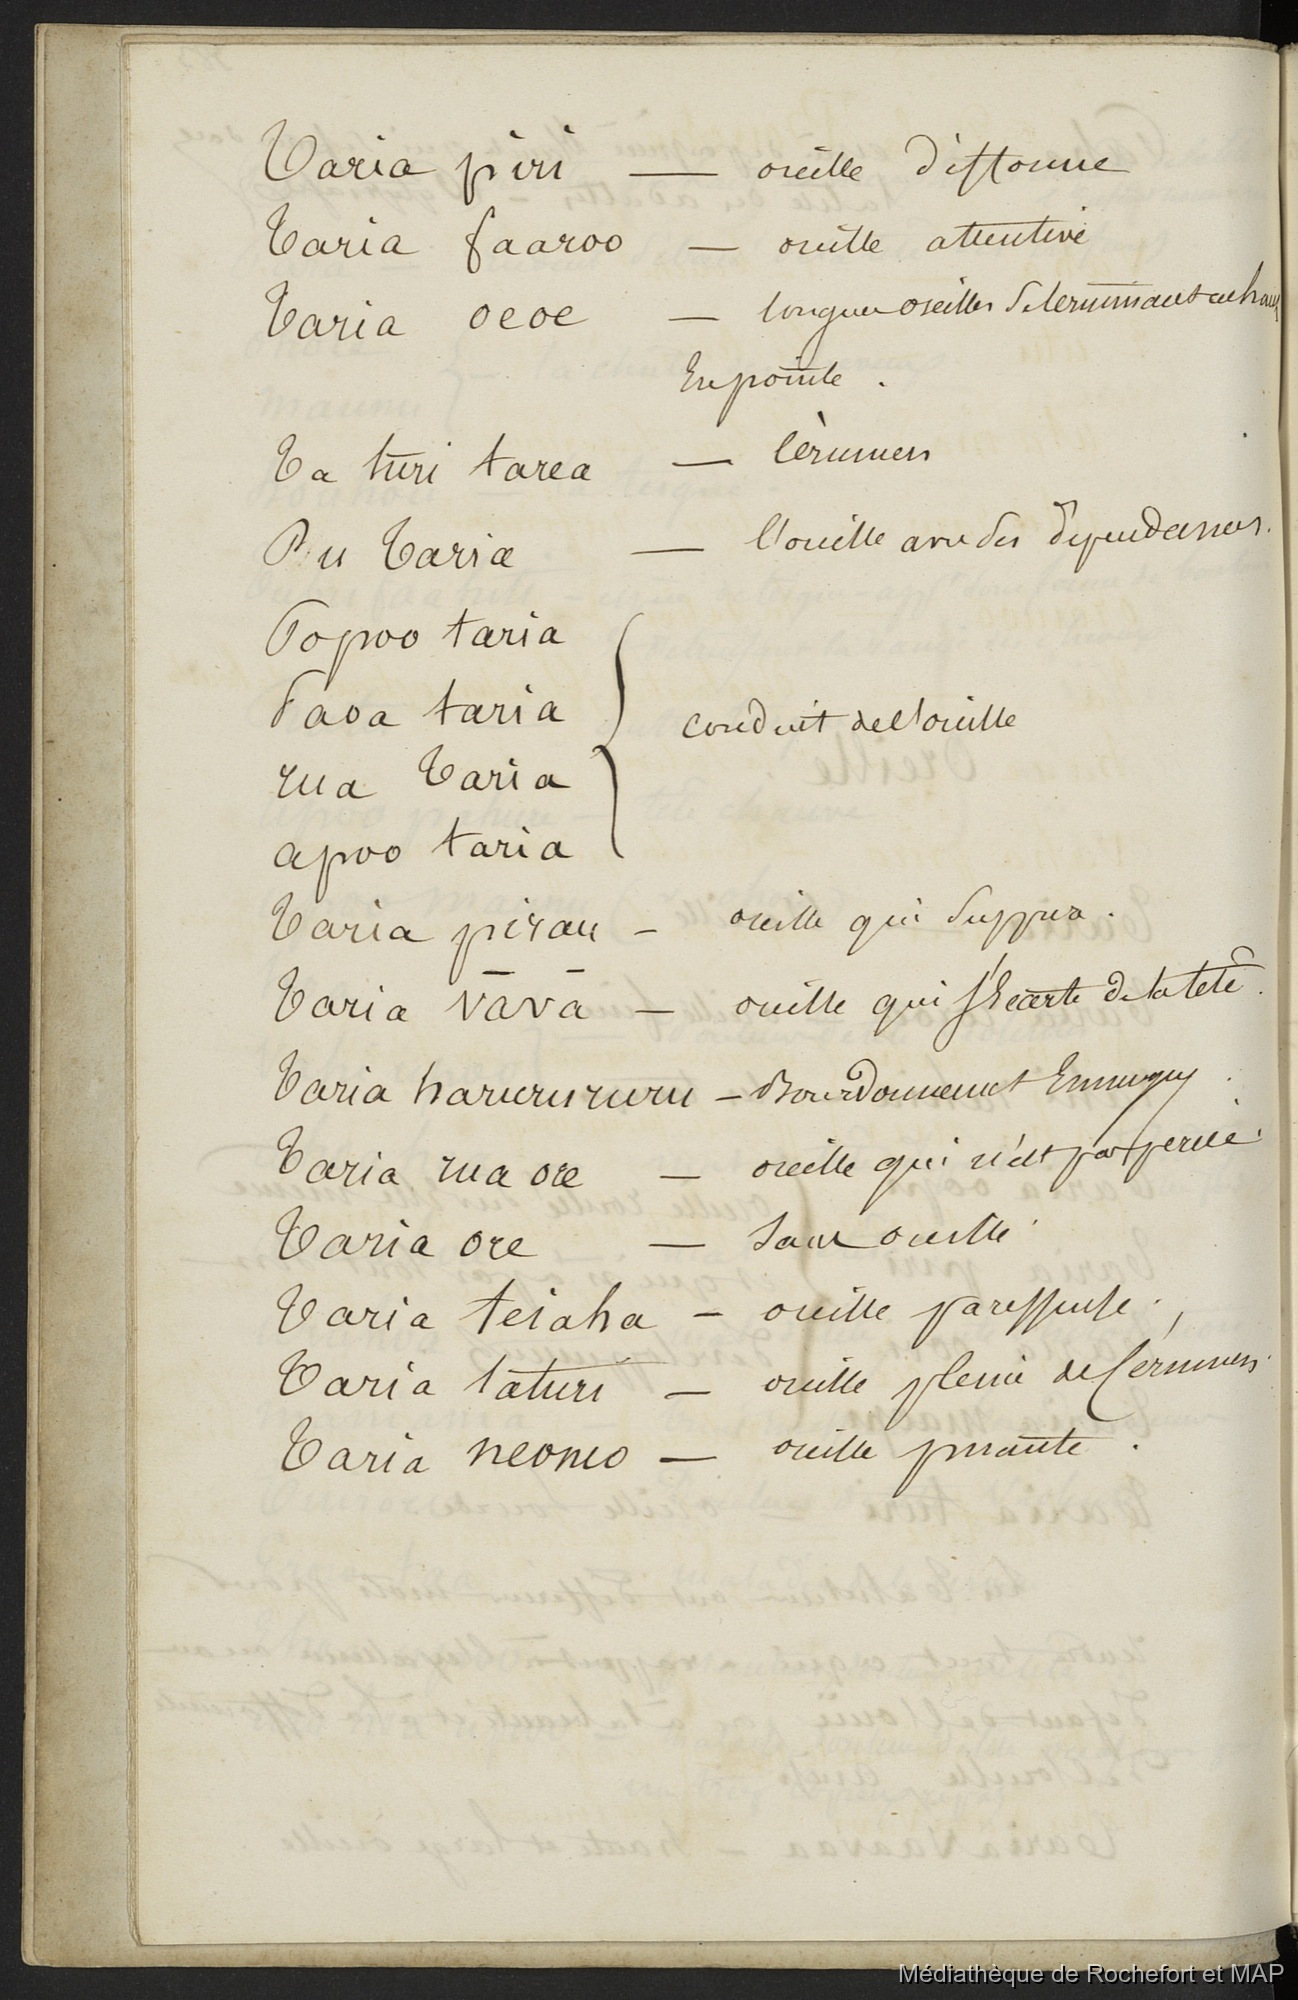 Taria piri — oreille difforme
Taria faaroo — oreille attentive
Taria oeoe — longues oreilles se terminant en haut
En pointe.
Ta turi tarea — Cèrumen
Pu Taria — l'oreille avec ses dependances.
Popoo taria
Paoa taria
rua Taria
conduit de l'oreille
apoo taria
Taria pirau — oreille qui suppure.
Taria vāvā — oreille qui s'Ecarte de la tête.
Taria haruruuruuru — Bourdonnement
Taria rua ore — oreille qui n'est pas percée.
Taria ore — sans oreille
Taria teiaha — oreille paresseuse.
Taria taturi — oreille pleine de Cérumen.
Taria neoneo — oreille puante.
Médiathèque de Rochefort et MAP